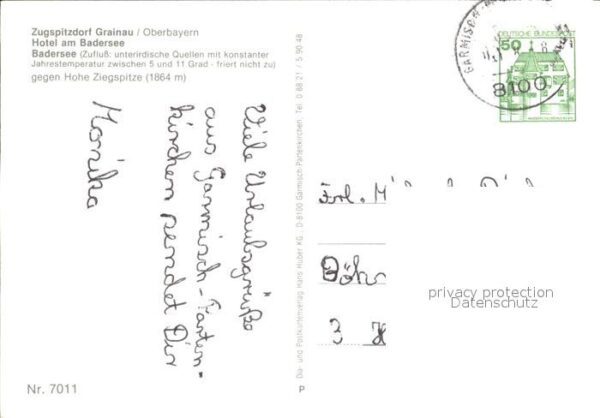 Zugspitzdorf Grainau / Oberbayern
Hotel am Badersee
Badersee (Zufluß: unterirdische Quellen mit konstanter
Jahrestemperatur zwischen 5 und 11 Grad - friert nicht zu)
gegen Hohe Ziegspitze (1864 m)
Viele Urlaubsgrüße
aus Garmisch-Parten-
kirchen sendet Dir
Monika
Nr. 7011
Dia- und Postkartenverlag Hans Huber KG. D-8100 Garmisch-Partenkirchen Tel. 0 88 21 / 5 90 48
P
DEUTSCHE BUNDESPOST
50
8100
Frl. M
3 H
privacy protection
Datenschutz